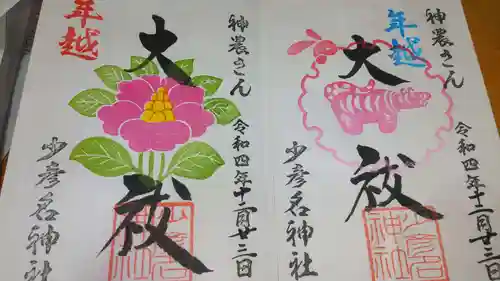 年越
神農さん
大祓
令和四年十二月廿三日
少彦名神社
少彦名
神社
年越
神農さん
大祓
令和四年十二月廿三日
少彦名神社
少彦名
神社